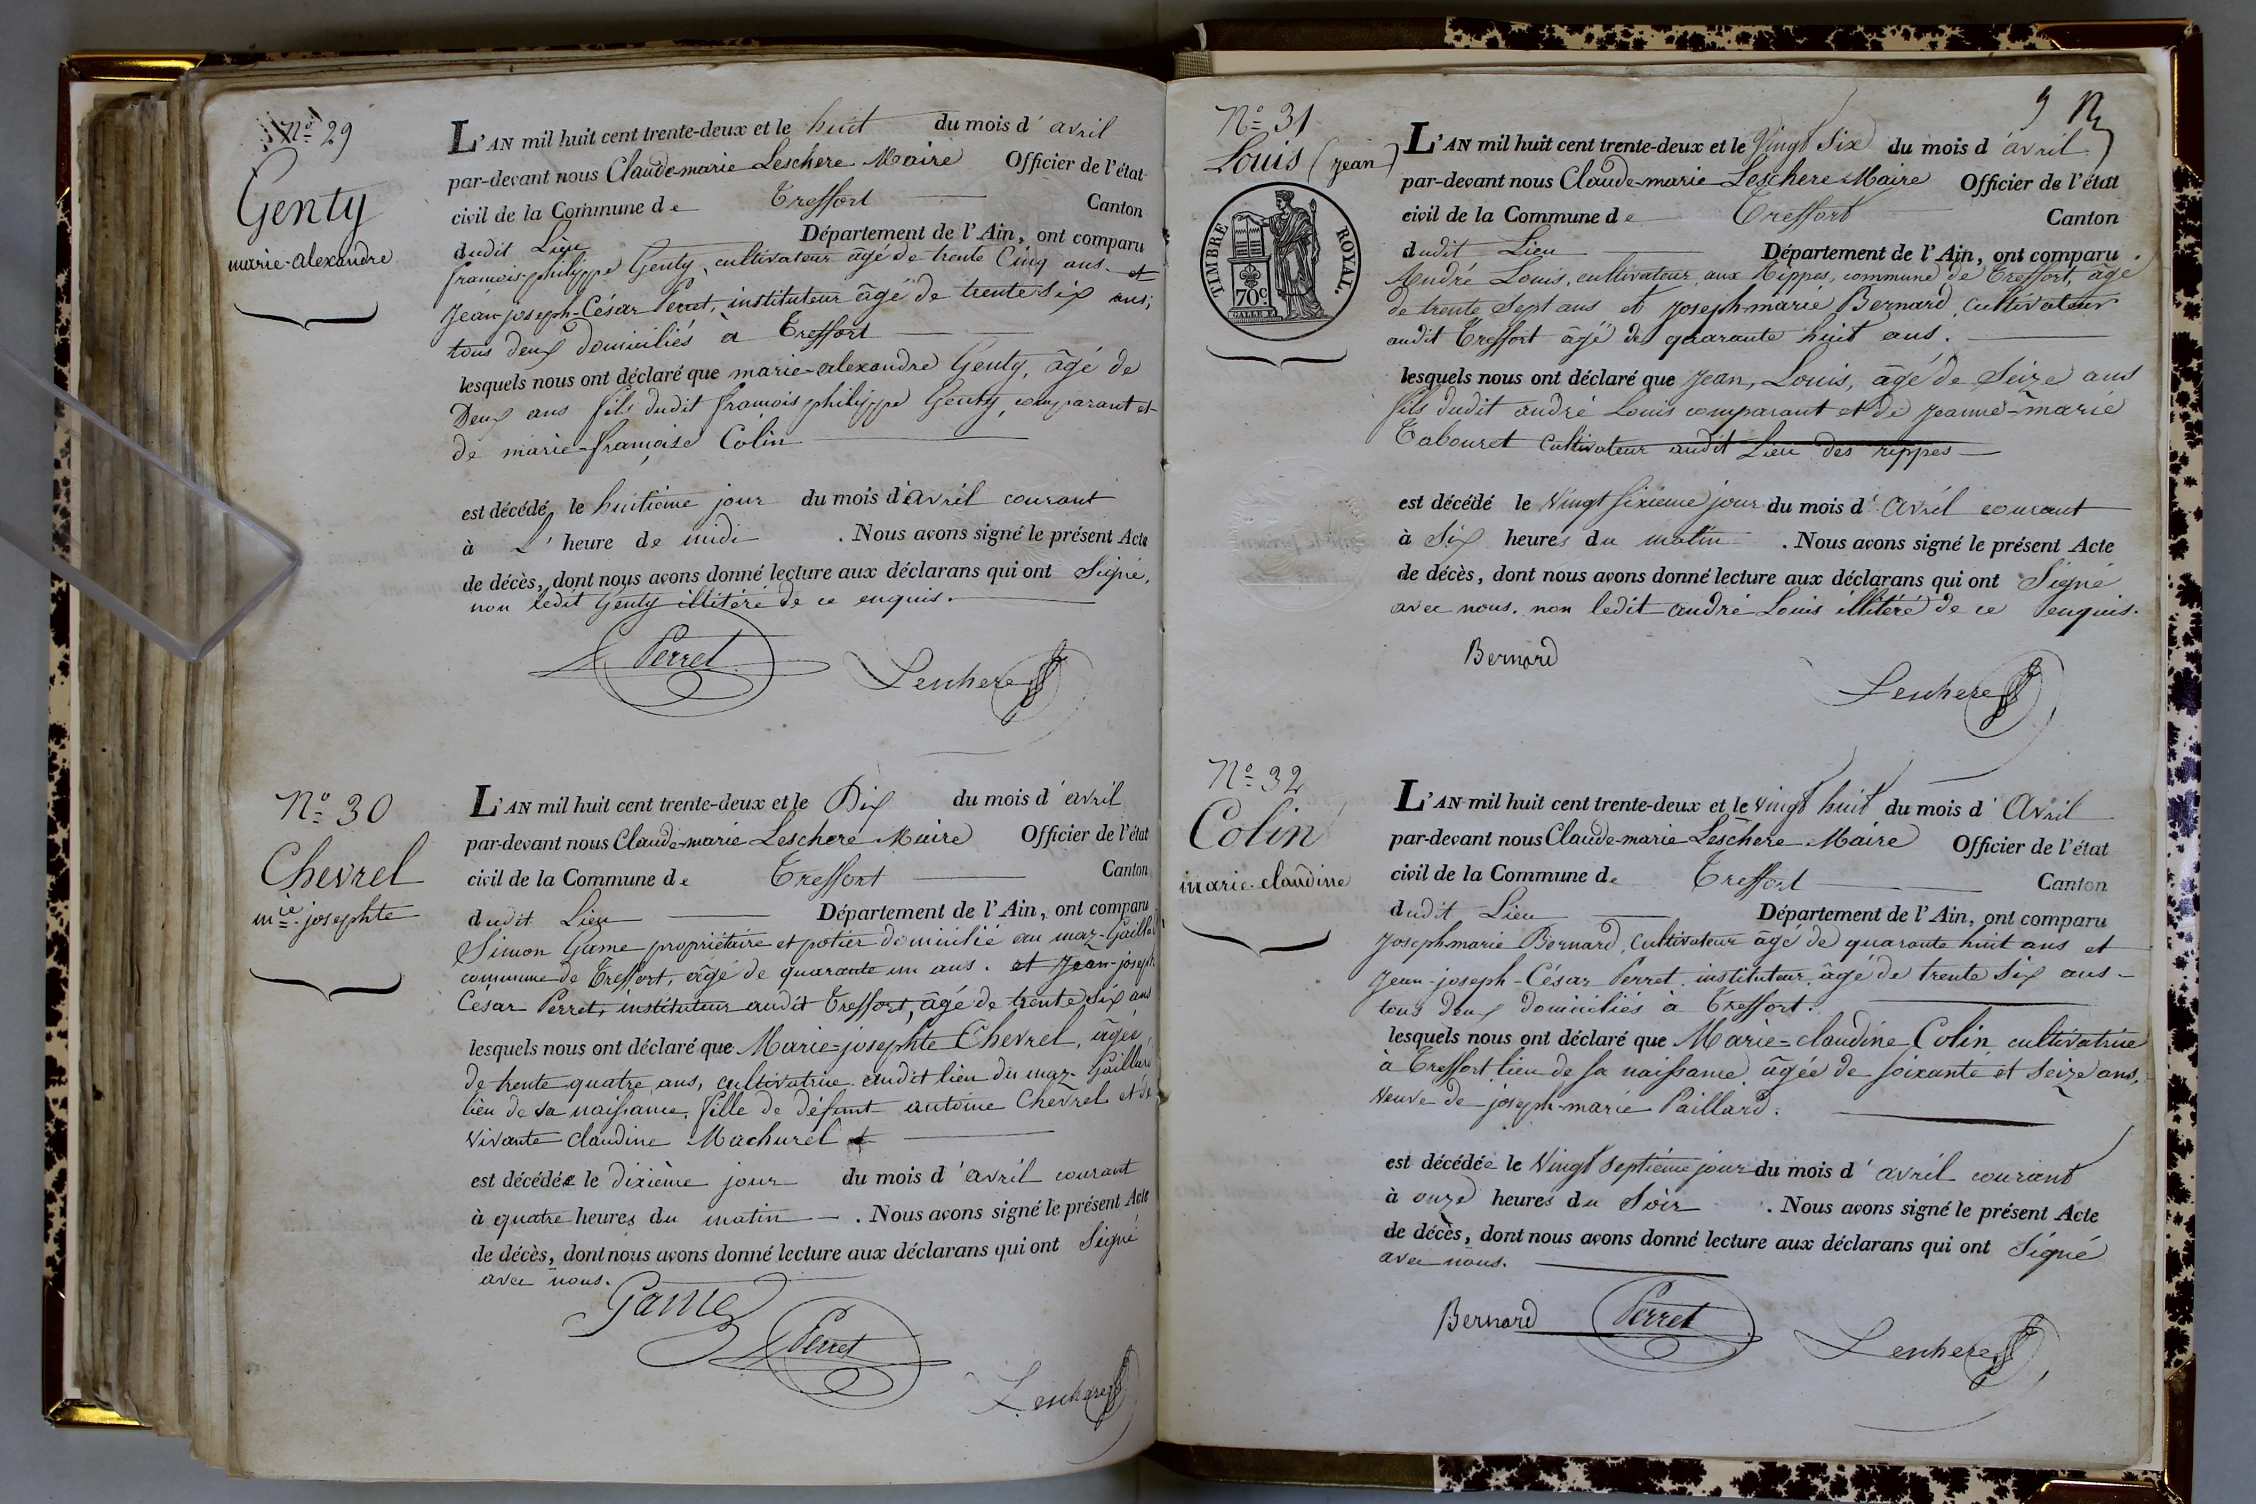 N.º 29
Genty
marie-alexandre
L'AN mil huit cent trente-deux et le huit du mois d'avril
par-devant nous Claude-marie Leschere Maire Officier de l'état
civil de la Commune de Treffort Canton
dudit Lieu Département de l'Ain, ont comparu
françois-philippe Genty, cultivateur âgé de trente Cinq ans et
Jean-joseph-César Perret, instituteur âgé de trente six ans;
tous deux domiciliés à Treffort
lesquels nous ont déclaré que marie-alexandre Genty, âgé de
Deux ans fils dudit françois philippe Genty, comparant et
de marie-françoise Colin
est décédé le huitième jour du mois d'avril courant
à L'heure de midi. Nous avons signé le présent Acte
de décès, dont nous avons donné lecture aux déclarans qui ont Signé,
non ledit Genty illitéré de ce enquis.
Perret Leschere
N.º 30
Chevrel
m.ie josephte
L'AN mil huit cent trente-deux et le Dix du mois d'avril
par-devant nous Claude-marie Leschere Maire Officier de l'état
civil de la Commune de Treffort Canton
dudit Lieu Département de l'Ain, ont comparu
Simon Game propriétaire et potier domicilié au maz-Gaillard
commune de Treffort, âgé de quarante un ans. et Jean-joseph
César Perret, instituteur audit Treffort, âgé de trente six ans
lesquels nous ont déclaré que Marie-josephte Chevrel, âgée
de trente quatre ans, cultivatrice audit lieu du maz-Gaillard
lieu de sa naissance, fille de défunt antoine Chevrel et de
vivante claudine Machurel
est décédée le dixième jour du mois d'avril courant
à quatre heures du matin. Nous avons signé le présent Acte
de décès, dont nous avons donné lecture aux déclarans qui ont Signé
avec nous.
Game
Perret
Leschere
9
N.º 31
Louis (jean)
TIMBRE ROYAL.
70c
L'AN mil huit cent trente-deux et le Vingt Six du mois d'avril
par-devant nous Claude-marie Leschere Maire Officier de l'état
civil de la Commune de Treffort Canton
dudit Lieu Département de l'Ain, ont comparu
André Louis, cultivateur aux Rippes, commune de Treffort, âgé
de trente Sept ans et joseph-marie Bernard, cultivateur
audit Treffort âgé de quarante huit ans.
lesquels nous ont déclaré que Jean, Louis, âgé de Seize ans
fils dudit andré Louis comparant et de jeanne-marie
Tabouret Cultivateur audit Lieu des rippes
est décédé le Vingt sixième jour du mois d'avril courant
à Six heures du matin. Nous avons signé le présent Acte
de décès, dont nous avons donné lecture aux déclarans qui ont Signé
avec nous. non ledit andré Louis illitéré de ce enquis.
Bernard
Leschere
N.º 32
Colin
marie-claudine
L'AN mil huit cent trente-deux et le Vingt huit du mois d'Avril
par-devant nous Claude-marie Leschere Maire Officier de l'état
civil de la Commune de Treffort Canton
dudit Lieu Département de l'Ain, ont comparu
Joseph-marie Bernard, cultivateur âgé de quarante huit ans et
Jean-joseph-César Perret, instituteur, âgé de trente six ans
tous deux domiciliés à Treffort.
lesquels nous ont déclaré que Marie-claudine Colin cultivatrice
à Treffort lieu de sa naissance âgée de soixante et seize ans,
Veuve de joseph-marie Paillard.
est décédée le Vingt septième jour du mois d'avril courant
à onze heures du Soir. Nous avons signé le présent Acte
de décès, dont nous avons donné lecture aux déclarans qui ont Signé
avec nous.
Bernard Perret Leschere